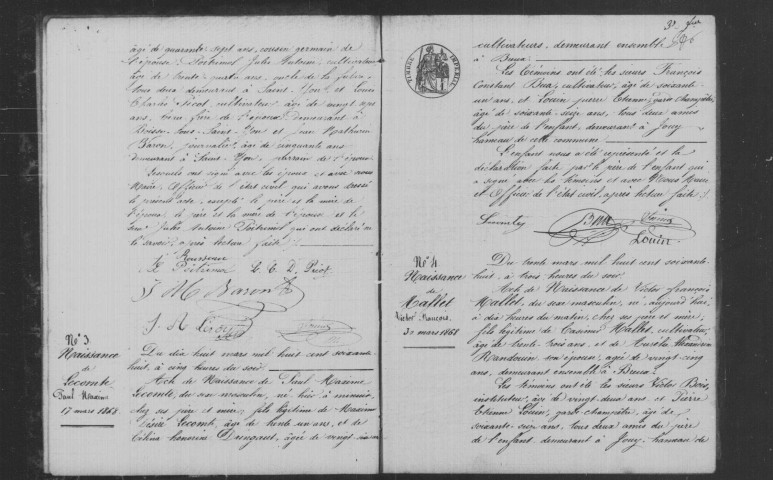 âgé de quarante sept ans, cousin germain de
l'épouse, Poitrimol Jules Antoine, cultivateur
âgé de trente quatre ans, oncle de la future,
tous deux demeurant à Saint-Yon, et Louis
Charles Picot, cultivateur âgé de vingt sept
ans, frère de l'époux demeurant à
sous-Saint-Yon et Jean Mathurin
Baron, journalier, âgé de cinquante ans
demeurant à Saint-Yon, de l'époux.
Lesquels ont signé avec les époux et avec nous
Maire, Officier de l'état civil qui avons dressé
le présent acte, excepté le père et la mère de
l'époux, le père et la mère de l'épouse et le
sieur Jules Antoine Poitrimol qui ont déclaré ne
le savoir, après lecture faite.
C. E. D. Picot
J M Baron
N° 3
Naissance
de
Lecomte
Paul Maxime
17 mars 1868
Du dix huit mars mil huit cent soixante
huit, à cinq heures du soir
Acte de Naissance de Paul Maxime
Lecomte, du sexe masculin, né hier à
chez ses père et mère; fils légitime de Maxime
Désiré Lecomte, âgé de trente un ans, et de
Célina honorine, âgée de vingt
TIMBRE IMPERIAL
cultivateurs, demeurant ensemble
à Breux
Les témoins ont été les sieurs François
Constant Bua, cultivateur, âgé de soixante
un ans, et Louin pierre Etienne, garde champêtre,
âgé de soixante-seize ans, tous deux amis
du père de l'enfant, demeurant à Jouy
hameau de cette commune
L'enfant nous a été représenté et la
déclaration faite par le père de l'enfant qui
a signé avec les témoins et avec Nous Maire
et Officier de l'état civil, après lecture faite.
Lecomte Bua
Louin
N° 4
Naissance
de
Mallet
Victor François
30 mars 1868
Du trente mars mil huit cent soixante
huit, à trois heures du soir.
Acte de Naissance de Victor François
Mallet, du sexe masculin, né aujourd'hui
à dix heures du matin, chez ses père et mère;
fils légitime de Casimir Mallet, cultivateur,
âgé de trente trois ans, et de Aurélie
Randouin son épouse, âgée de vingt-cinq
ans, demeurant ensemble à Breux
Les témoins ont été les sieurs Victor Bois,
instituteur, âgé de vingt-deux ans et Pierre
Etienne Louin, garde-champêtre, âgé de
soixante-seize ans, tous deux amis du père
de l'enfant demeurant à Jouy, hameau de